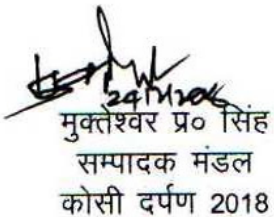 मुक्तेश्वर प्र० सिंह
सम्पादक मंडल
कोसी दर्पण 2018